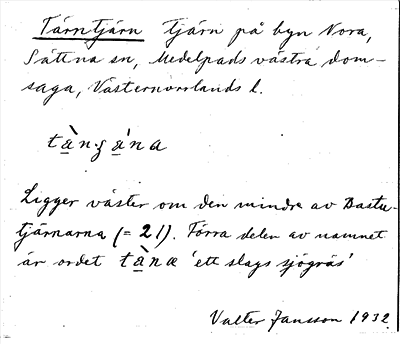 Tärntjärn tjärn på byn Nora,
Sättna sn, Medelpads västra dom-
saga, Västernorrlands l.
Ligger väster om den mindre av Bastu-
tjärnarna (= 21). Förra delen av namnet
är ordet tàna 'ett slags sjögräs'
Valter Jansson 1932